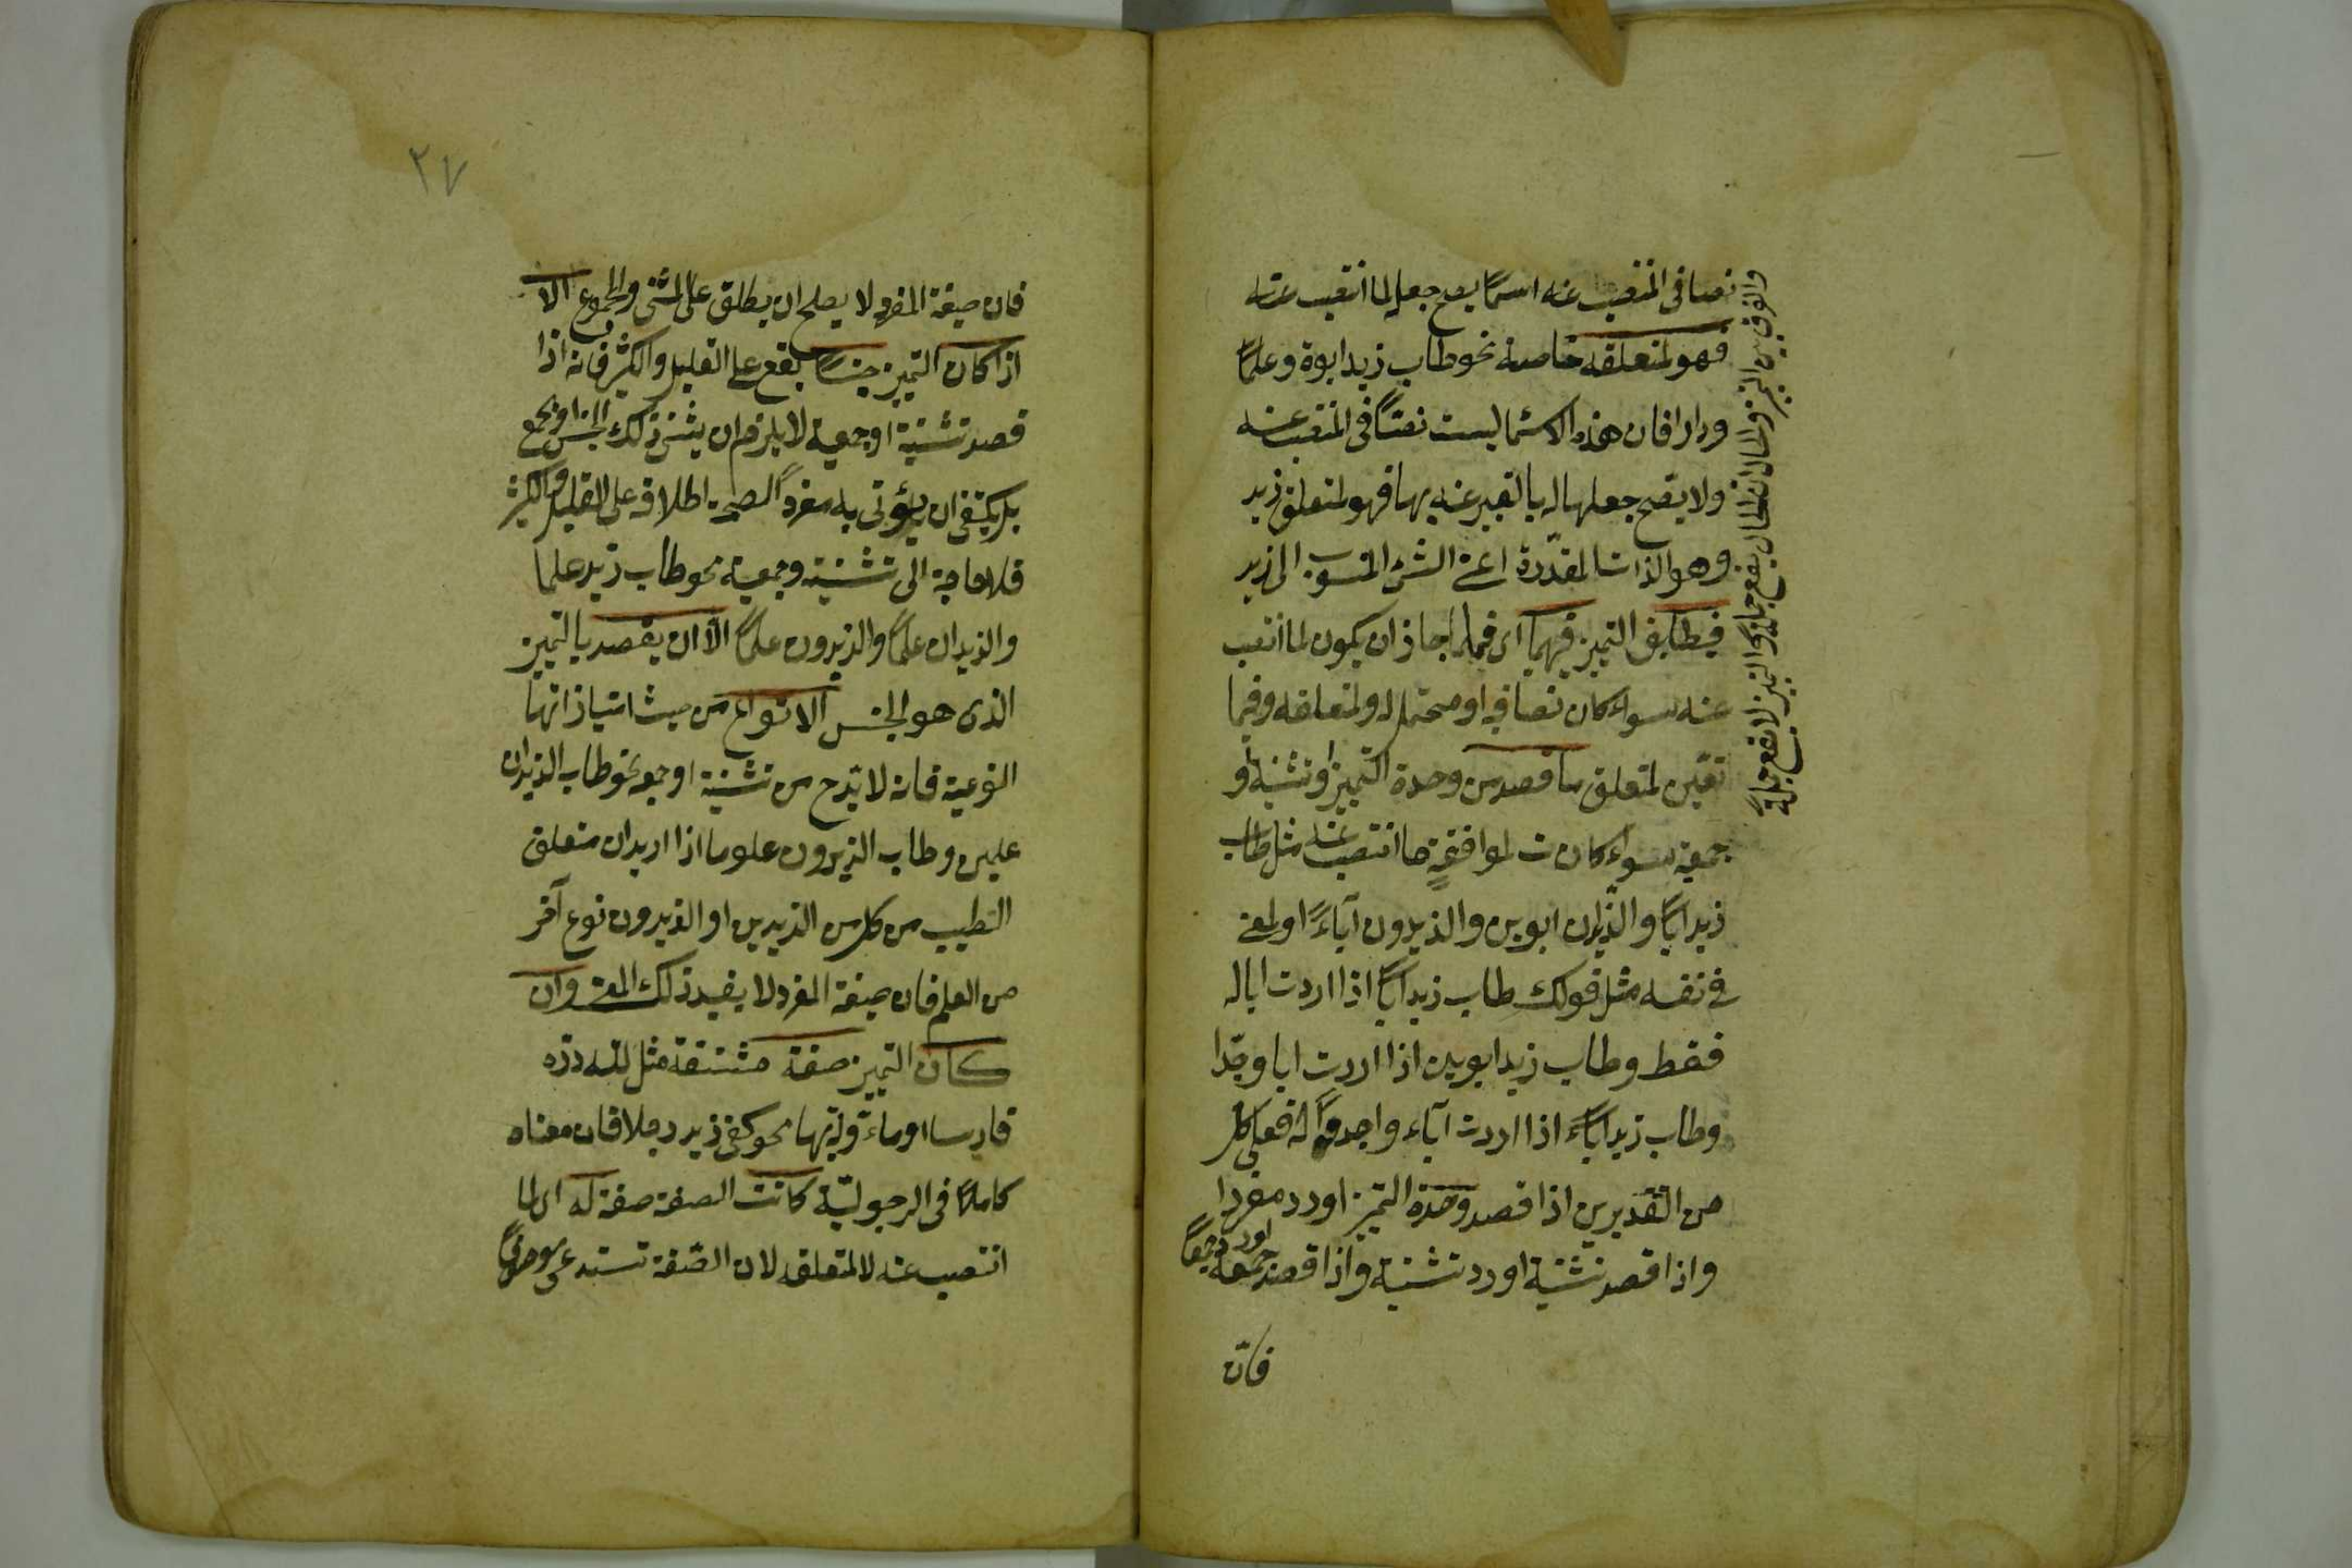 نصا فى المنتصب عنه اسمًا يصح جعله لما انتصب عنه
فهو لمتعلقه خاصة نحو طاب زيد ابوة وعلمًا
ودارا فان هذه الاسما ليست نصًا فى المنتصب عنه
ولا يصح جعلها له بالتعبير عنه بها فهو لمتعلق زيد
وهو الذات المقدّرة اعنى الشئ المنسوب الى زيد
فيطابق التميز فيهما اى فيما جاز ان يكون لما انتصب
عنه سواء كان نصا فيه او محتمل له ولمتعلقه وفيما
تعيّن لمتعلق ما قصد من وحدة التميز او تثنية او
جمعية سواء كان ت لموافقة ما انتصب عنه مثل طاب
زيد ابًا والزيدان ابوين والزيدون آباءً او لمعنى
فى نفسه مثل قولك طاب زيد ابًا اذا اردت ابا له
فقط وطاب زيد ابوين اذا اردت ابا وجدّا
وطاب زيد اباءً اذا اردت آباء واجدادًا له فعلى كل
من التقديرين اذا قصد وحدة التميز اورد مفردا
واذا قصد تثنية اورد تثنية واذا قصد جمعية اورد جمعًا
فان
والفرق بين التميز والحال ان الحال يقع جملة والتميز لا يقع جملةً
٢٧
فان صيغة المفرد لا يصلح ان يطلق على المثنى والمجموع الا
اذا كان التميز جنسًا يقع على القليل والكثير فانه اذا
قصد تثنية او جمعية لا يلزم ان يثنى ذلك الجنس او يجمع
بل يكتفى ان يؤتى به مفردًا لصحة اطلاقه على القليل والكثير
فلا حاجة الى تثنيته وجمعية نحو طاب زيد علما
والزيدان علمًا والزيدون علمًا الا ان يقصد بالتميز
الذى هو الجنس الانواع من حيث امتيازاتها
النوعية فانه لا بّد ح من تثنية او جمع نحو طاب الزيدان
علمين وطاب الزيدون علوما اذا اريد ان متعلق
الطيب من كل من الزيدين او الزيدون نوع آخر
من العلم فان صيغة المفرد لا يفيد ذلك المعنى وان
كان التميز صفة مشتقة مثل لله درّه
فارسا او مأوّلة بها نحو كفى زيد رجلا فان معناه
كاملاً فى الرجوليّة كانت الصفة صفة له اى لما
انتصب عنه لا لمتعلقه لان الصّفة تستدعى موصوفًا